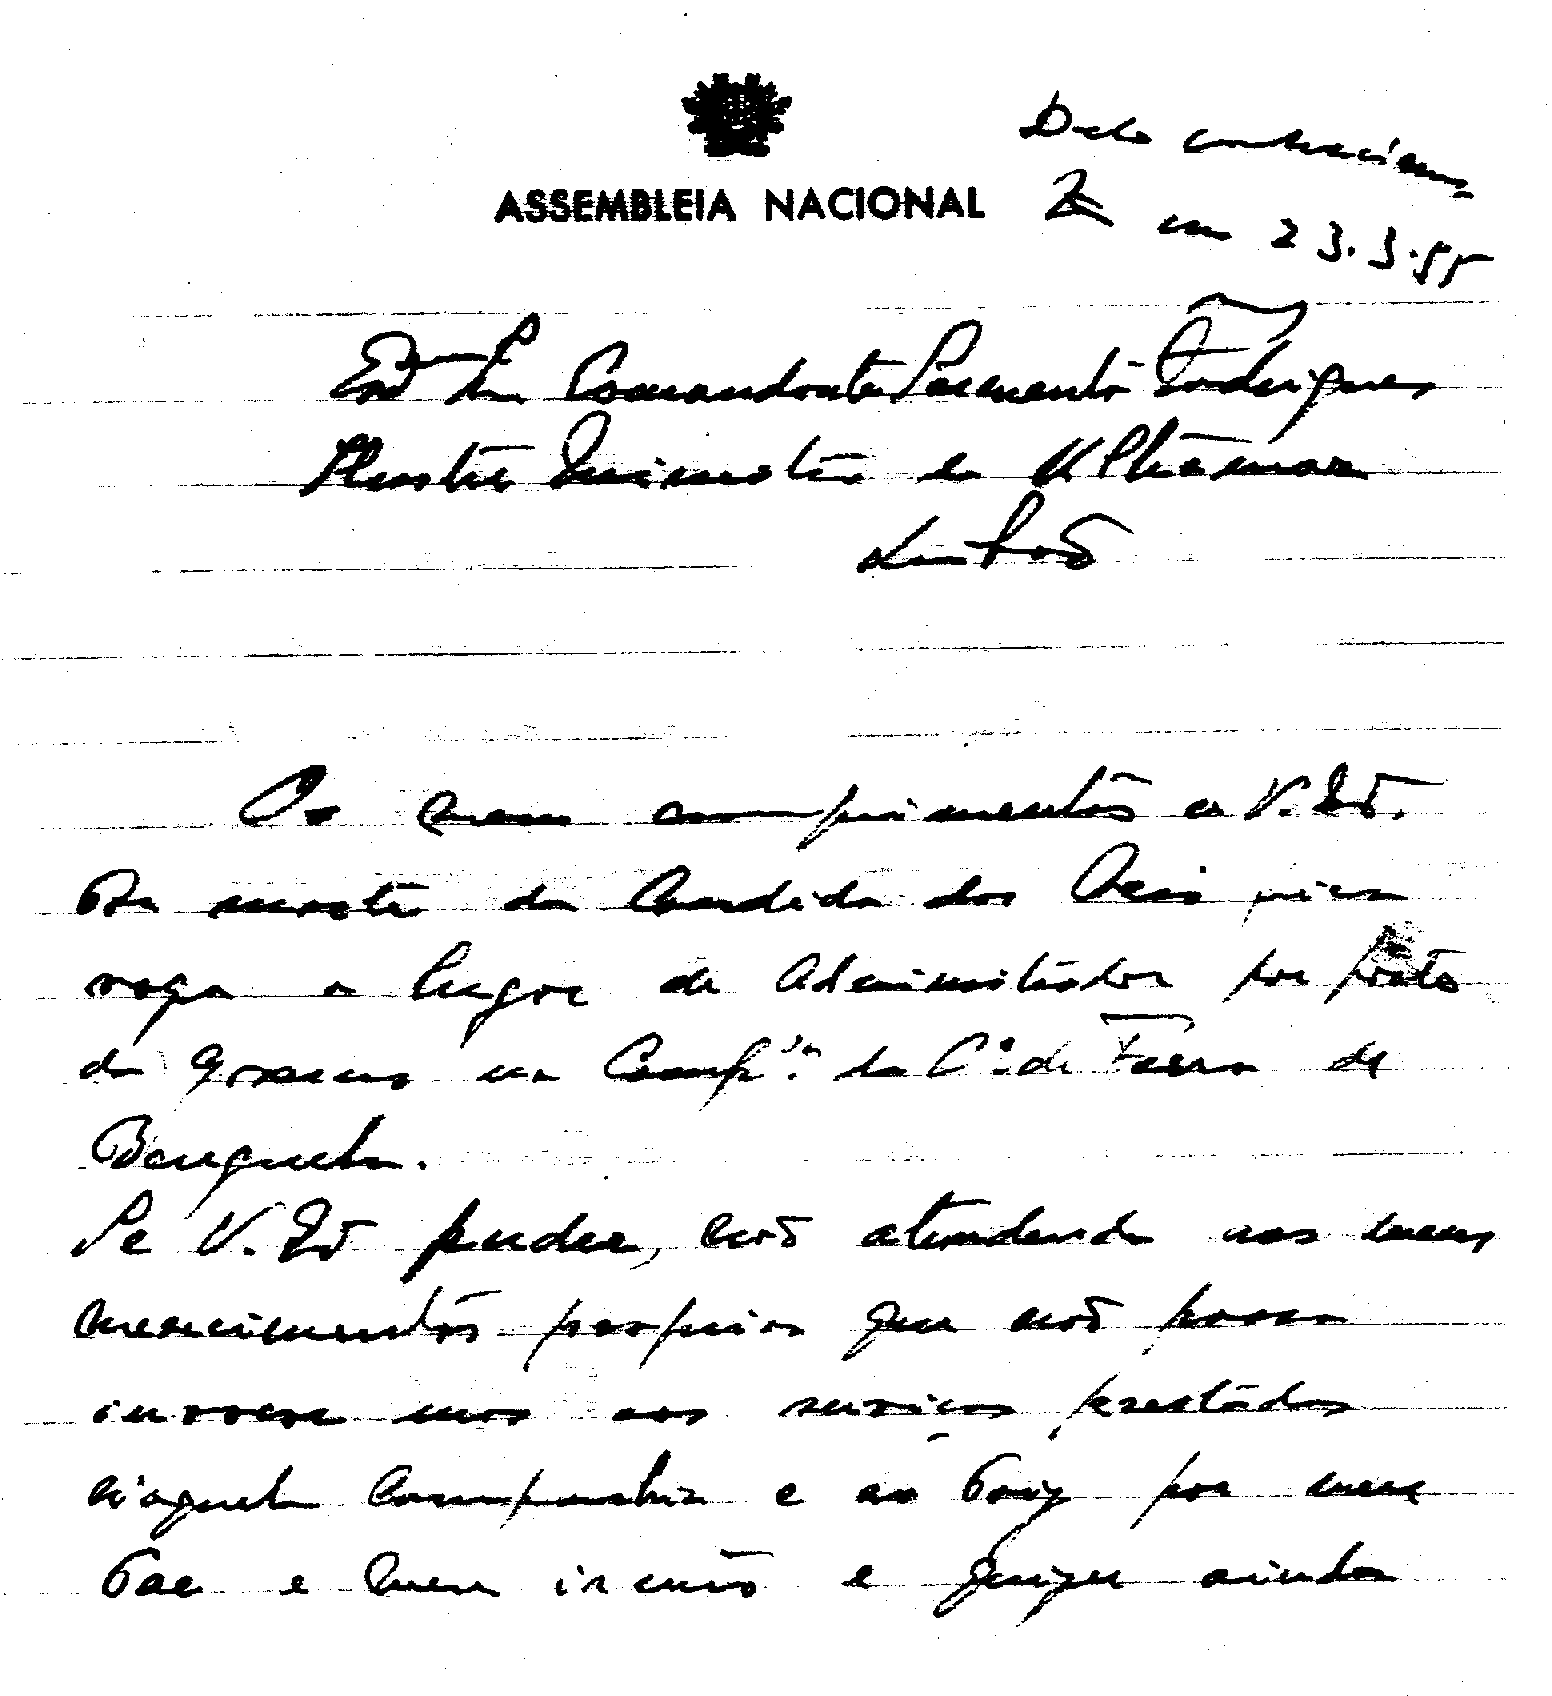 ASSEMBLEIA NACIONAL
em 23.3.55
Exmo Sr. Comandante Sarmento Rodrigues
Ilustre Ministro do Ultramar
Lisboa
Os meus cumprimentos a V. Exª.
Por morte do Candido dos Reis
vaga o lugar de Administrador por parte
do governo na Compª. do Cº. de Ferro de
Benguela.
Se V. Exª puder, não atendendo aos meus
merecimentos proprios que não posso
invocar mas aos serviços prestados
áquela Companhia e ao Paiz por meu
Pae e meu irmão e ainda